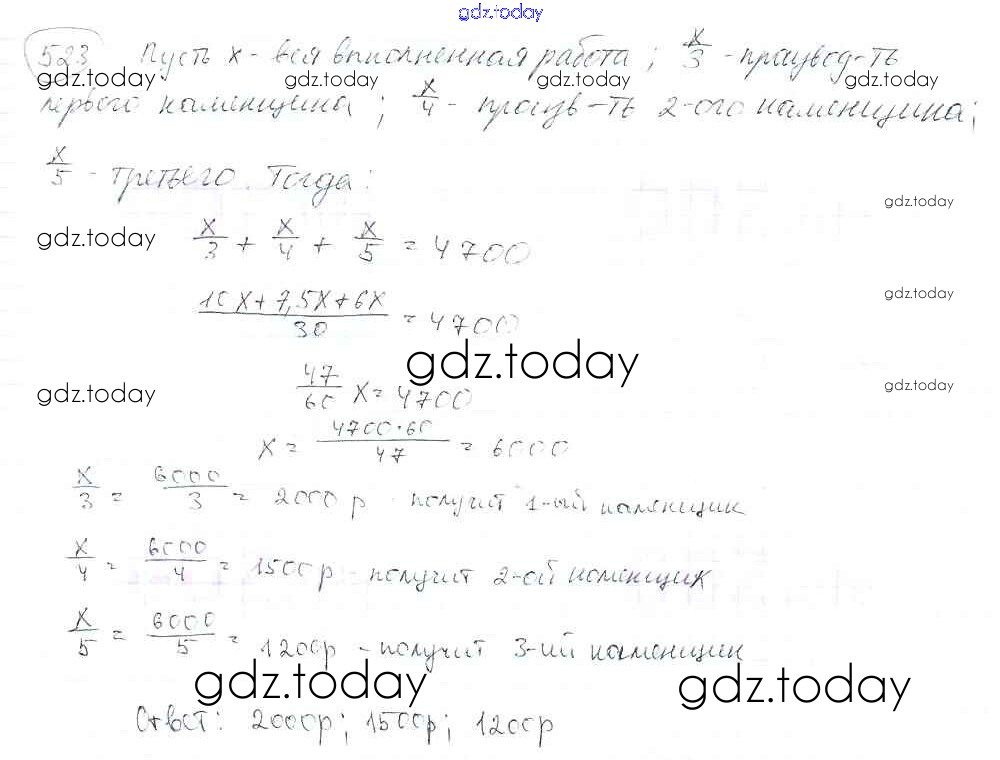 gdz.today
523 Пусть x - вся выполненная работа; x/3 - производ-ть
gdz.today gdz.today gdz.today
первого каменщика; x/4 - произв-ть 2-ого каменщика;
x/5 - третьего. Тогда:
gdz.today
gdz.today
x/3 + x/4 + x/5 = 4700
gdz.today
(10x + 7,5x + 6x)/30 = 4700
gdz.today
gdz.today gdz.today
47/60 x = 4700
x = 4700·60/47 = 6000
x/3 = 6000/3 = 2000 р - получит 1-ый каменщик
x/4 = 6000/4 = 1500 р - получит 2-ой каменщик
x/5 = 6000/5 = 1200р - получит 3-ий каменщик
gdz.today gdz.today
Ответ: 2000р; 1500р; 1200р